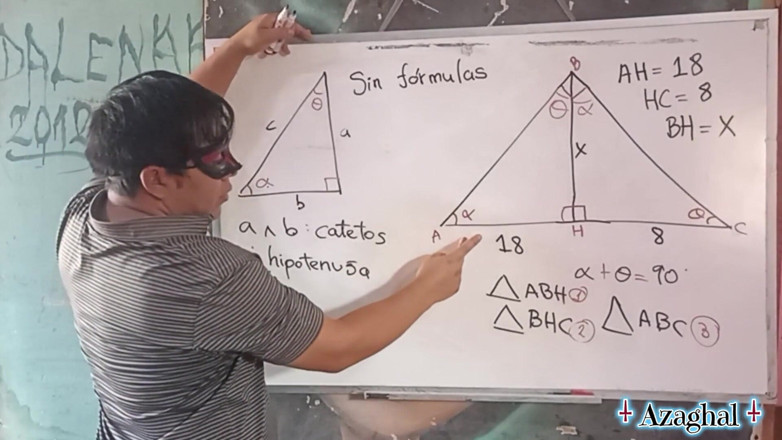 DALENKA
2012
Sin fórmulas
θ
c
a
α
b
a ∧ b: catetos
hipotenusa
B
θ α
x
α
θ
A
H
C
18
8
AH = 18
HC = 8
BH = X
α + θ = 90°
△ABH ①
△BHC ②
△ABC ③
Azaghal